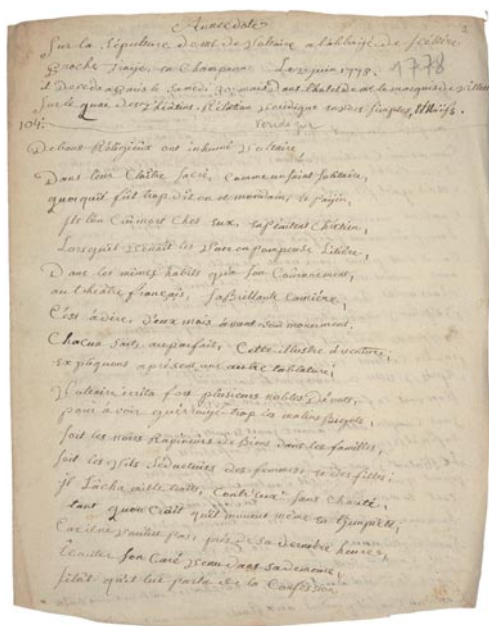 Annecdote
2
Sur la Sépulture de mr de Voltaire a l'abbaye de Scellière
proche Troyes, en Champagne Le 2 juin 1778. 1778
il deceda a Paris le Samedi 30 mai Dans l'hotel de mr le marquis de Villette
Sur le quai des Théatins. Rélation veridique en vers Simples, & Naïfs.
104.
De bons Réligieux ont inhumé Voltaire
Dans leur Cloître Sacré, Comme un Saint Solitaire,
quoiqu'il fût trop dit on et mondain, et payen,
ils l'on Cru mort Chés eux, en pénitent Chrétien,
Lorsqu'il venoit les voir en pompeuse Litière,
Dans les mêmes habits qu'a Son Couronnement,
au théatre français, Sa Brillante Carrière,
C'est à dire, deux mois avant Son monument.
Chacun Sait au parfait, Cette illustre aventure,
Expliquons apresent une autre tablature;
Voltaire irrita fort plusieurs nobles Dévots,
pour avoir trop les malins Bigots,
Soit les noirs Rapineurs de Biens dans les familles,
Soit les vils Séducteurs des femmes, et des filles;
il Lâcha mille traits, Contr'eux Sans Charité,
tant qu'on Croit qu'il mourut même en
Car il ne voulut pas, près de Sa derniere heure,
Ecouter Son Curé venu dans Sa demeure,
Sitôt qu'il lui parla de la Confession